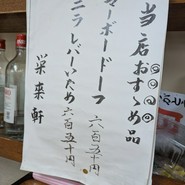 当店おすゝめ品
マーボードーフ 六百五十円
ニラレバーいため 六百五十円
栄来軒